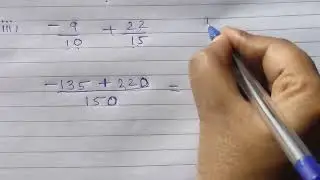 iii, -9/10 + 22/15
-135 + 220/150 =